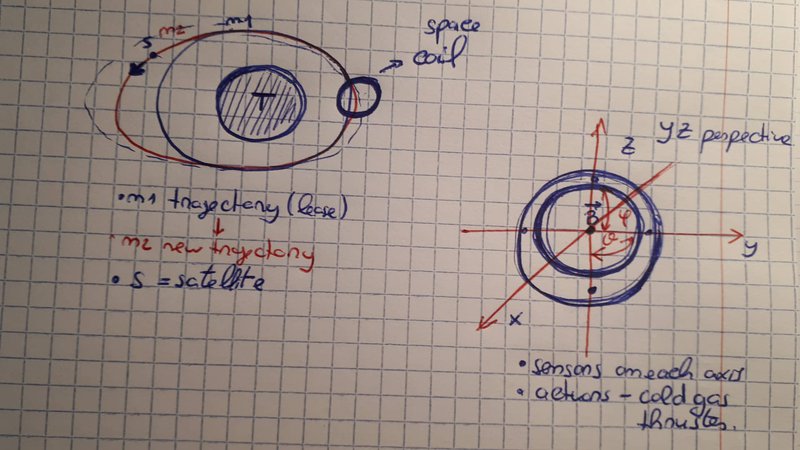 m2
m1
S
space
coil
T
• m1 trajectory (base)
• m2 new trajectory
• S = satellite
YZ perspective
Z
B
φ
θ
y
x
• sensors on each axis
• actions - cold gas
thruster.